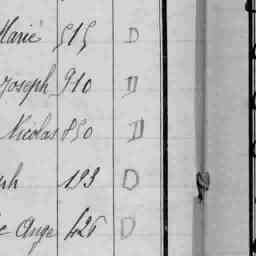 Marie 515 D
Joseph 910 D
Nicolas 850 D
ph 193 D
e Ange 426 D